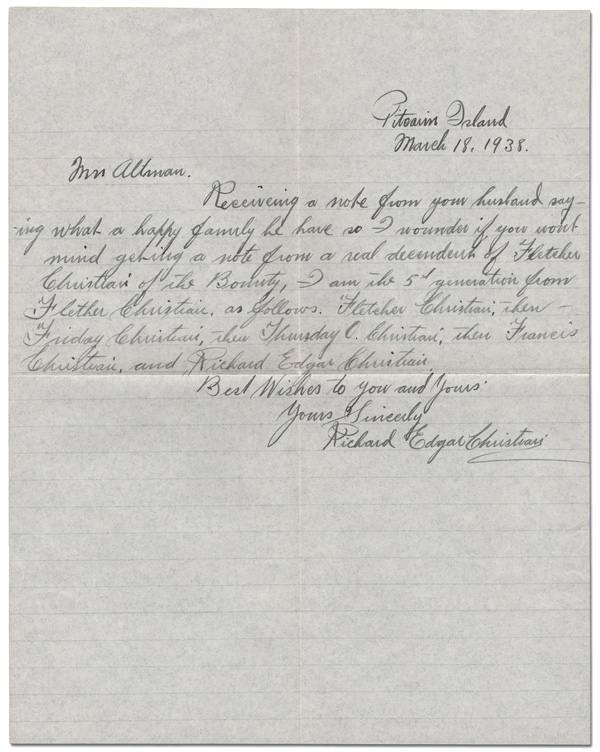 Pitcairn Island
March 18, 1938.
Mrs Altman.
Receiveing a note from your husband say-
ing what a happy family he have so I wounder if you wont
mind getting a note from a real decendent of Fletcher
Christian of the Bounty, I am the 5th generation from
Flether Christian, as follows. Fletcher Christian, then -
Friday Christian, then Thursday O. Christian, then Francis
Christian, and Richard Edgar Christian.
Best Wishes to you and Yours.
Yours Sincerly
Richard Edgar Christian